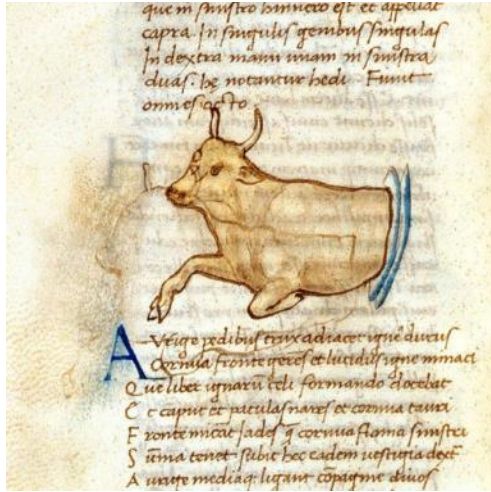 que in sinistro humero est et appellat
capra. In singulis genibus singulas
In dextra manu unam in sinistra
duas. hę notantur hedi. Fiunt
omnes octo.
AVrige pedibus trux adiacet igne
Cornua fronte geres et lucidus igne minaci
Que liber ignarū celi formando docebat
Et caput et patulas nares et cornua tauri
Fronte micāt Iades q cornua flama sinistri
Sūma tenet subit hec eadem vestigia
Aurige mediaq ligant cōpagine divos